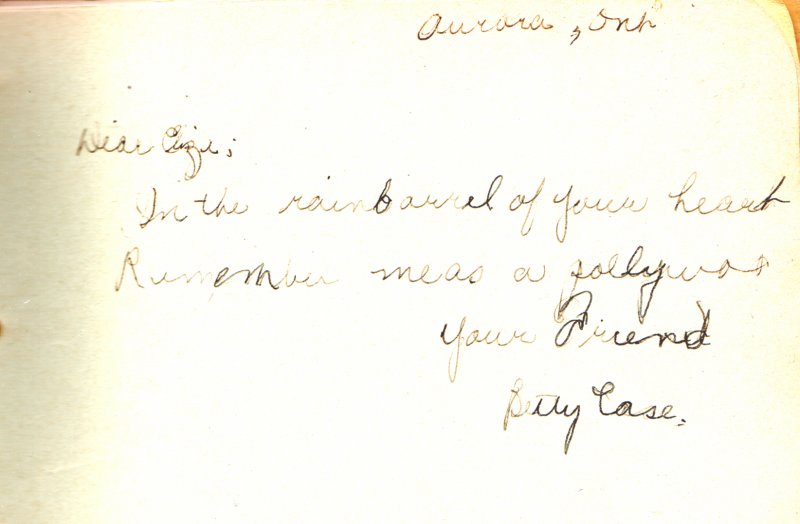 Aurora, Ont
Dear
In the rainbarrel of your heart
Remember me as a pollywot
Your Friend
Betty Case.